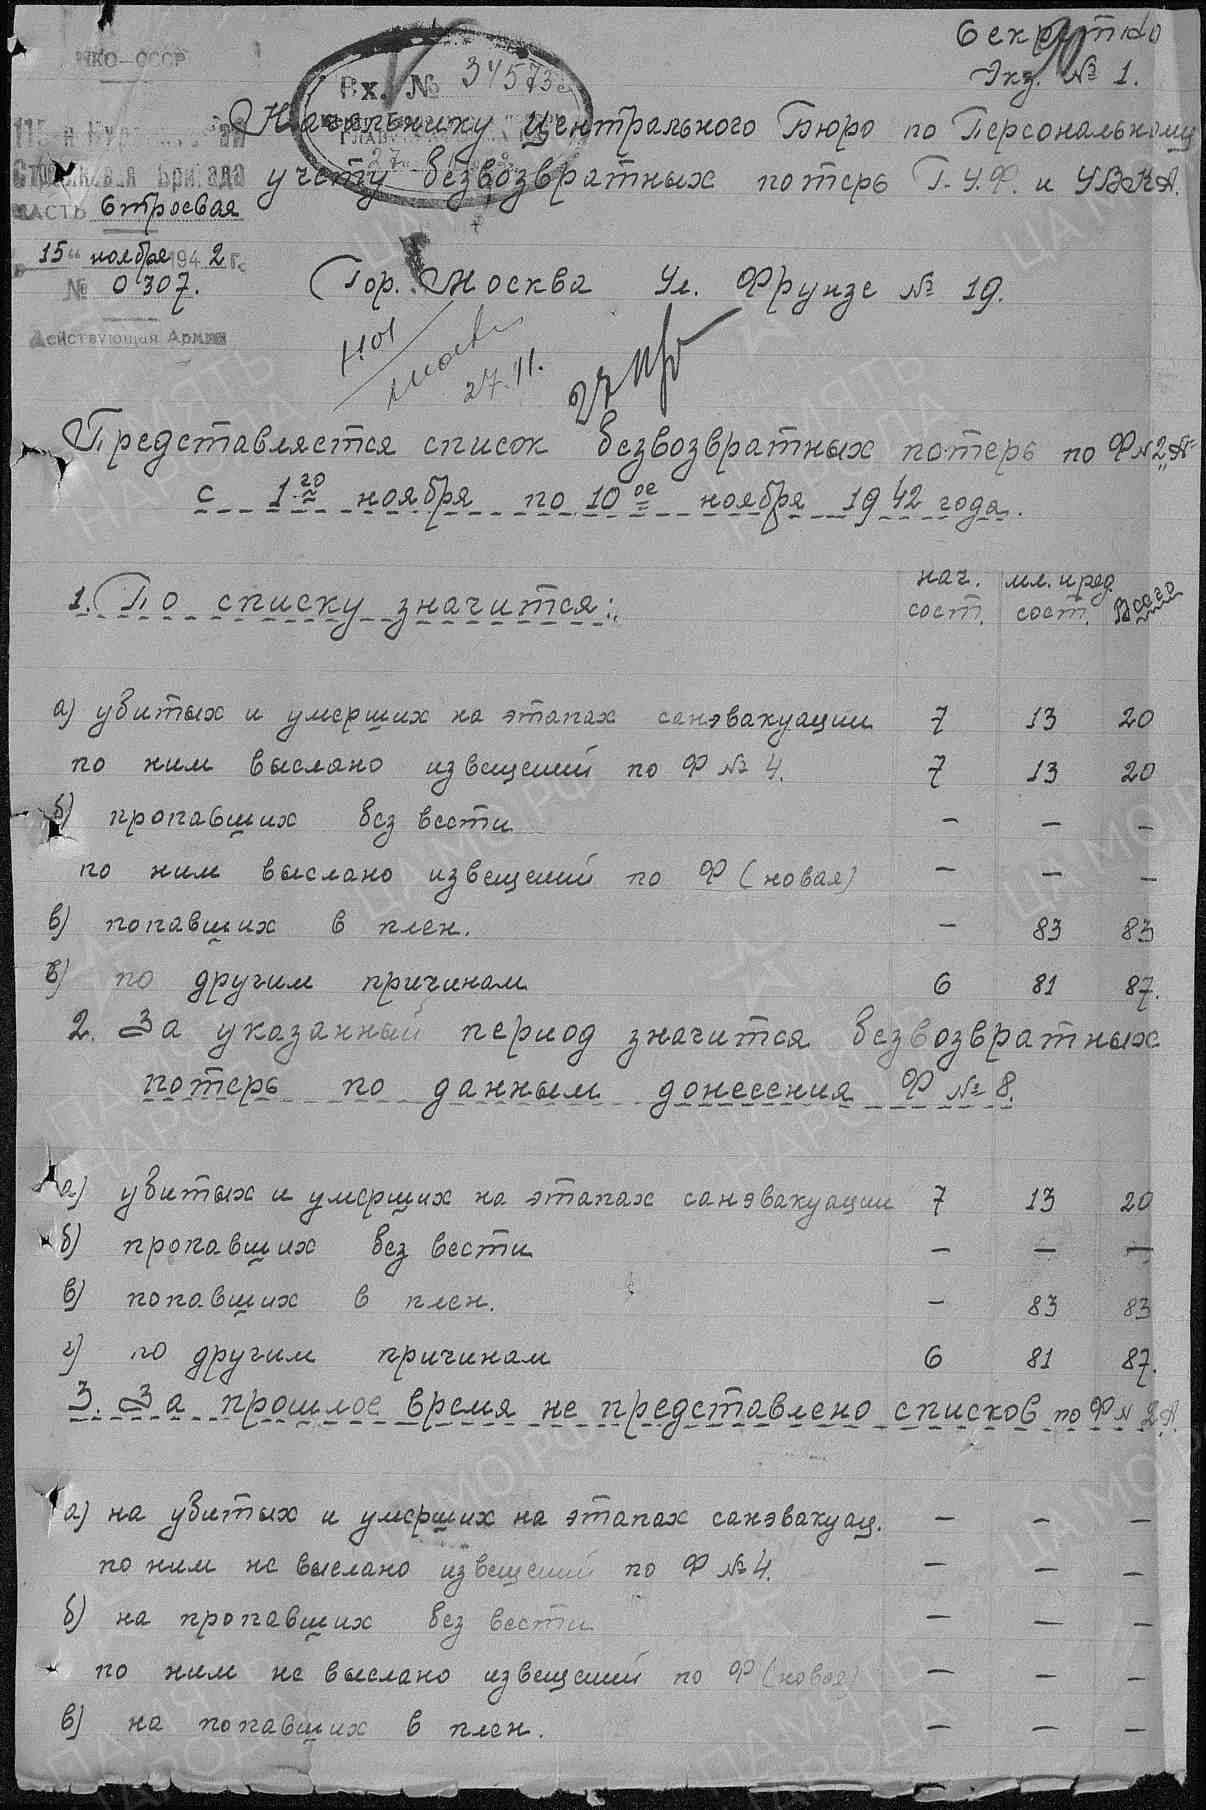 Секретно
Экз. № 1.
НКО–СССР
Вх. № 34573с
115-я
Стрелковая Бригада
ЧАСТЬ Строевая
„15“ ноября 1942 г.
№ 0307.
Действующая Армия
Начальнику Центрального Бюро по Персональному
учету безвозвратных потерь Г.У.Ф. и УВКА.
Гор. Москва Ул. Фрунзе № 19.
27.11.
Представляется список безвозвратных потерь по Ф№2„А“
с 1го ноября по 10ое ноября 1942 года.
нач. сост. мл. и ряд. сост. Всего
1. По списку значится:
а) убитых и умерших на этапах санэвакуации 7 13 20
по ним выслано извещений по Ф № 4. 7 13 20
б) пропавших без вести – – –
по ним выслано извещений по Ф (новая) – – –
в) попавших в плен. – 83 83
г) по другим причинам 6 81 87.
2. За указанный период значится безвозвратных
потерь по данным донесения Ф № 8.
а) убитых и умерших на этапах санэвакуации 7 13 20
б) пропавших без вести – – –
в) попавших в плен. – 83 83
г) по другим причинам 6 81 87.
3. За прошлое время не представлено списков по Ф№ 2„А“.
а) на убитых и умерших на этапах санэвакуац. – – –
по ним не выслано извещений по Ф №4. – – –
б) на пропавших без вести – – –
по ним не выслано извещений по Ф (новая) – – –
в) на попавших в плен. – – –